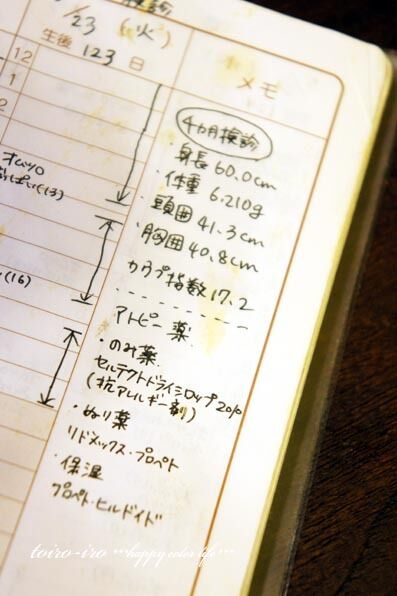 検診
23 (火)
生後 123 日
メモ
12
1
2
オムツ
おっぱい(13)
(16)
4カ月検診
・身長 60.0cm
・体重 6.210g
・頭囲 41.3cm
・胸囲 40.8cm
カウプ指数 17.2
アトピー薬
・のみ薬
セルテクトドライシロップ2%
(抗アレルギー剤)
・ぬり薬
リドメックス・プロペト
・保湿
プロペト・ヒルドイド
toiro-iro ***happy color life***